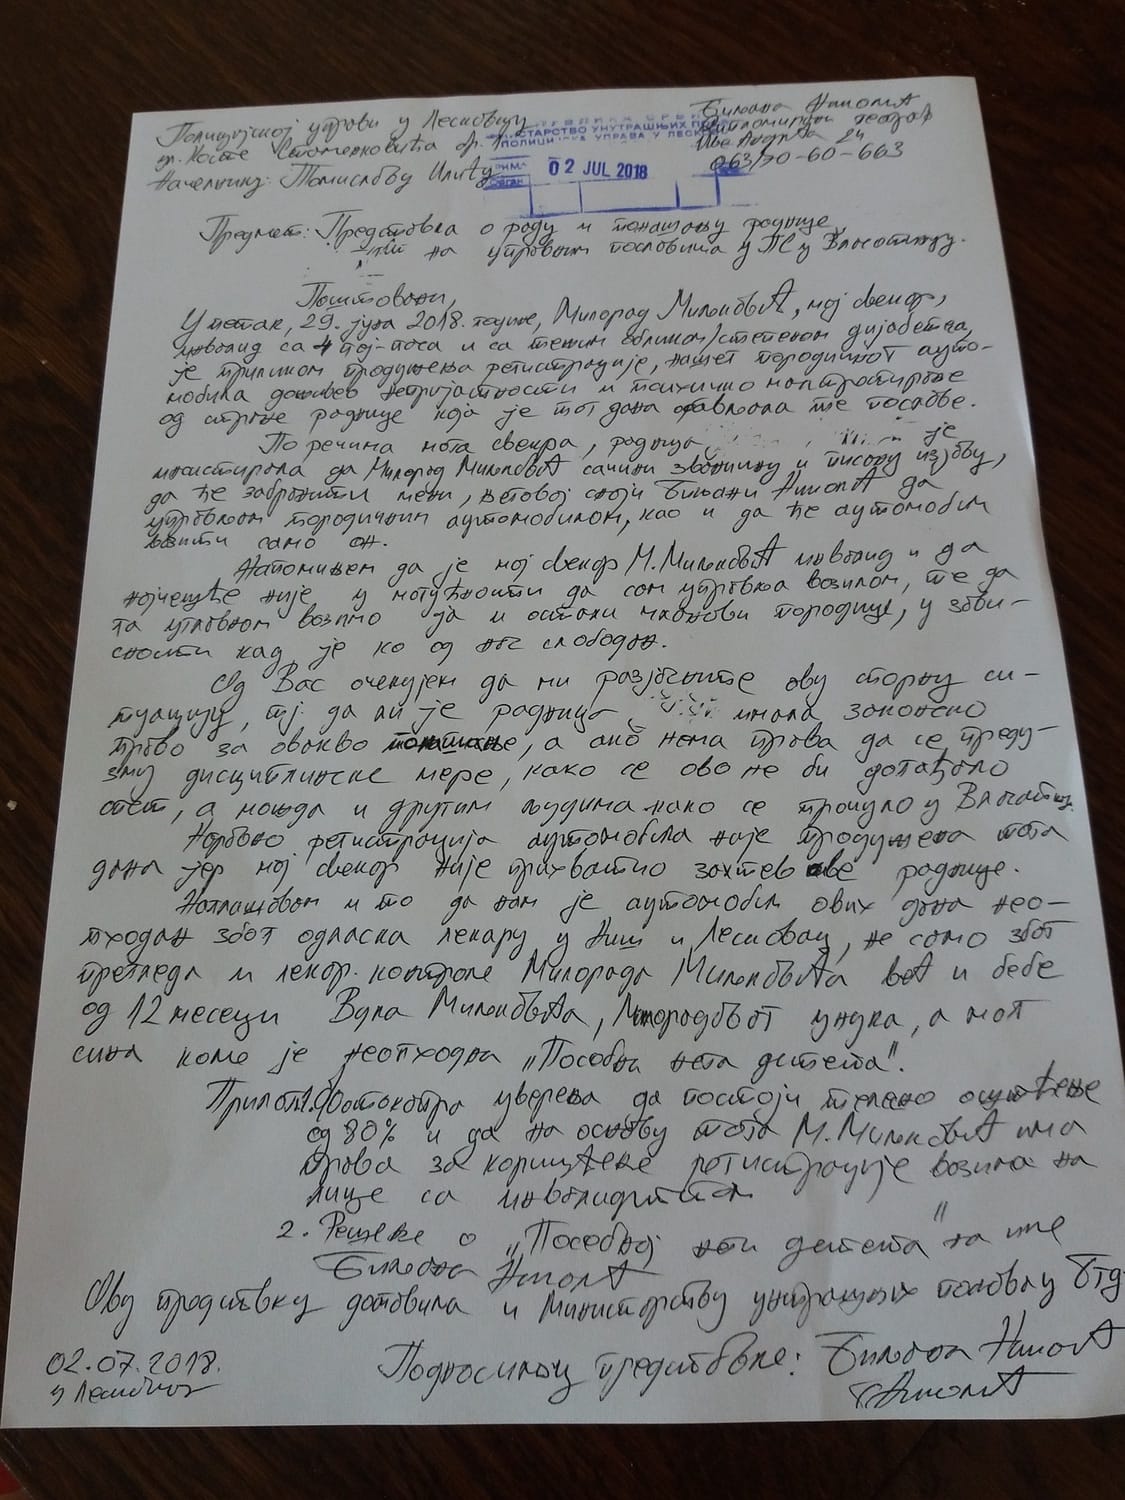 Полицијској управи у Лесковцу
ул. Косте Стаменковића бр. 1
Начелнику: Томиславу Илићу
Биљана Николић
Дипломирани
Иве Андрића 24
063/70-60-663
МИНИСТАРСТВО УНУТРАШЊИХ
ПОЛИЦИЈСКА УПРАВА У ЛЕСК
02 JUL 2018
Предмет: Представка о раду и понашању раднице
на управним пословима у ПС у Власотинцу.
Поштовани,
У петак, 29. јуна 2018. године, Милорад Миленковић, мој свекар,
инвалид са 4 бај-паса и са тешким обликом/степеном дијабетеса,
је приликом продужења регистрације, нашег породичног ауто-
мобила доживео непријатности и психичко малтретирање
од стране раднице која је тог дана обављала те послове.
По речима мога свекра, радница је
инсистирала да Милорад Миленковић сачини званичну и писану изјаву,
да ће забранити мени, његовој снаји Биљани Николић да
управљам породичним аутомобилом, као и да ће аутомобил
возити само он.
Напомињем да је мој свекар М. Миленковић инвалид и да
најчешће није у могућности да сам управља возилом, те да
га углавном возимо ја и остали чланови породице, у зави-
сности кад је ко од нас слободан.
Од Вас очекујем да ми разјасните ову спорну си-
туацију, тј. да ли је радница имала законско
право за овакво понашање, а ако нема права да се преду-
зму дисциплинске мере, како се ово не би догађало
опет, а можда и другим људима како се прочуло у Власотинцу.
Наравно регистрација аутомобила није продужена тога
дана јер мој свекар није прихватио захтев ове раднице.
Наглашавам и то да нам је аутомобил ових дана нео-
пходан због одласка лекару у Ниш и Лесковац, не само због
прегледа и лекар. контроле Милорада Миленковића већ и бебе
од 12 месеци Вука Миленковића, Милорадовог унука, а мог
сина коме је неопходна „Посебна нега детета".
Прилог: 1. Фотокопија уверења да постоји телесно оштећење
од 80% и да на основу тога М. Миленковић има
права за коришћење регистрације возила на
лице са инвалидитетом
2. Решење о „Посебној нези детета" на име
Биљана Николић
Ову представку доставила и Министарству унутрашњих послова у Бгд.
02.07.2018.
у Лесковцу
Подносилац представке: Биљана Николић
БНиколић